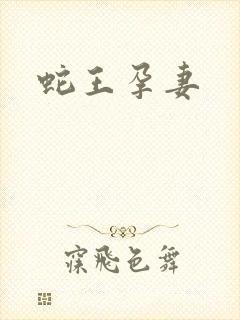 蛇王孕妻
寐飛色舞